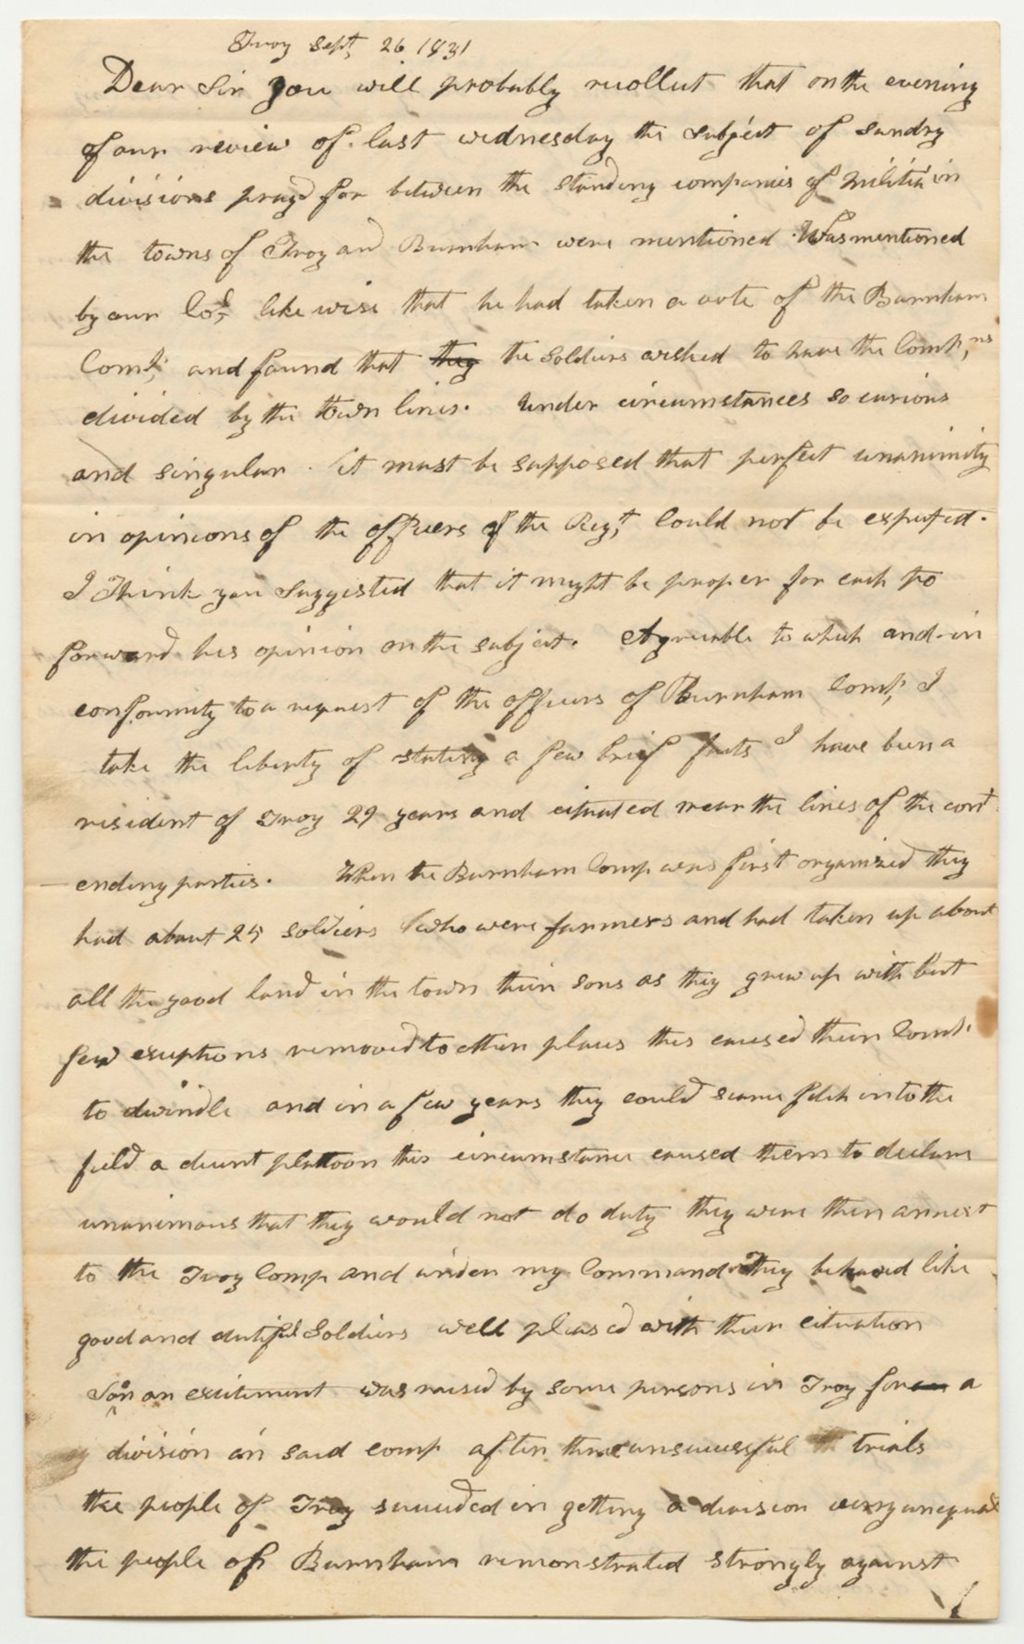 Troy Sept, 26 1831
Dear Sir you will probably recollect that on the evening
of our review of last wednesday the subject of sundry
divisions pray'd for between the standing companies of militia in
the towns of Troy and Burnham were mentioned. Was mentioned
by our Col, likewise that he had taken a vote of the Burnham
Comp, and found that they the soldiers wished to have the Comp,ns
divided by the town lines. Under circumstances so curious
and singular. it must be supposed that perfect unanimity
in opinions of the officers of the Regt, Could not be expected.
I Think you suggested that it might be proper for each to
forward his opinion on the subject. Agreeable to which and in
conformity to a request of the officers of Burnham Comp, I
take the liberty of stating a few brief facts I have been a
resident of Troy 29 years and cituated near the lines of the cont
ending parties. When the Burnham Comp was first organized they
had about 25 soldiers who were farmers and had taken up about
all the good land in the town their sons as they grew up with but
few exeptions removed to other places this caused their Comp.
to dwindle and in a few years they could scarce fetch into the
field a decent plattoon this circumstance caused them to declare
unanimous that they would not do duty they were then annext
to the Troy Comp and under my Command They behaved like
good and dutiful Soldiers well pleased with their cituation
Soon an exsitement was raised by some persons in Troy for a
division in said comp after three unsucessful trials
the people of Troy succeeded in getting a division very unequal
the people of Burnham remonstrated strongly against